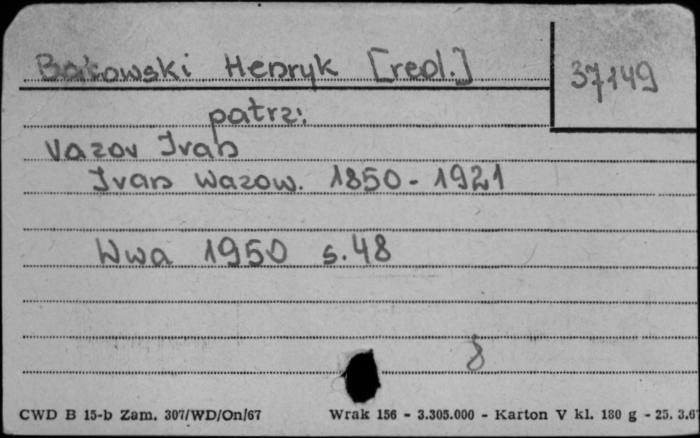 Batowski Henryk [red.]
37149
patrz:
Vazov Ivan
Ivan Wazow. 1850-1921
Wwa 1950 s.48
8
CWD B 15-b Zam. 307/WD/On/67 Wrak 156 - 3.305.000 - Karton V kl. 180 g - 25. 3.67